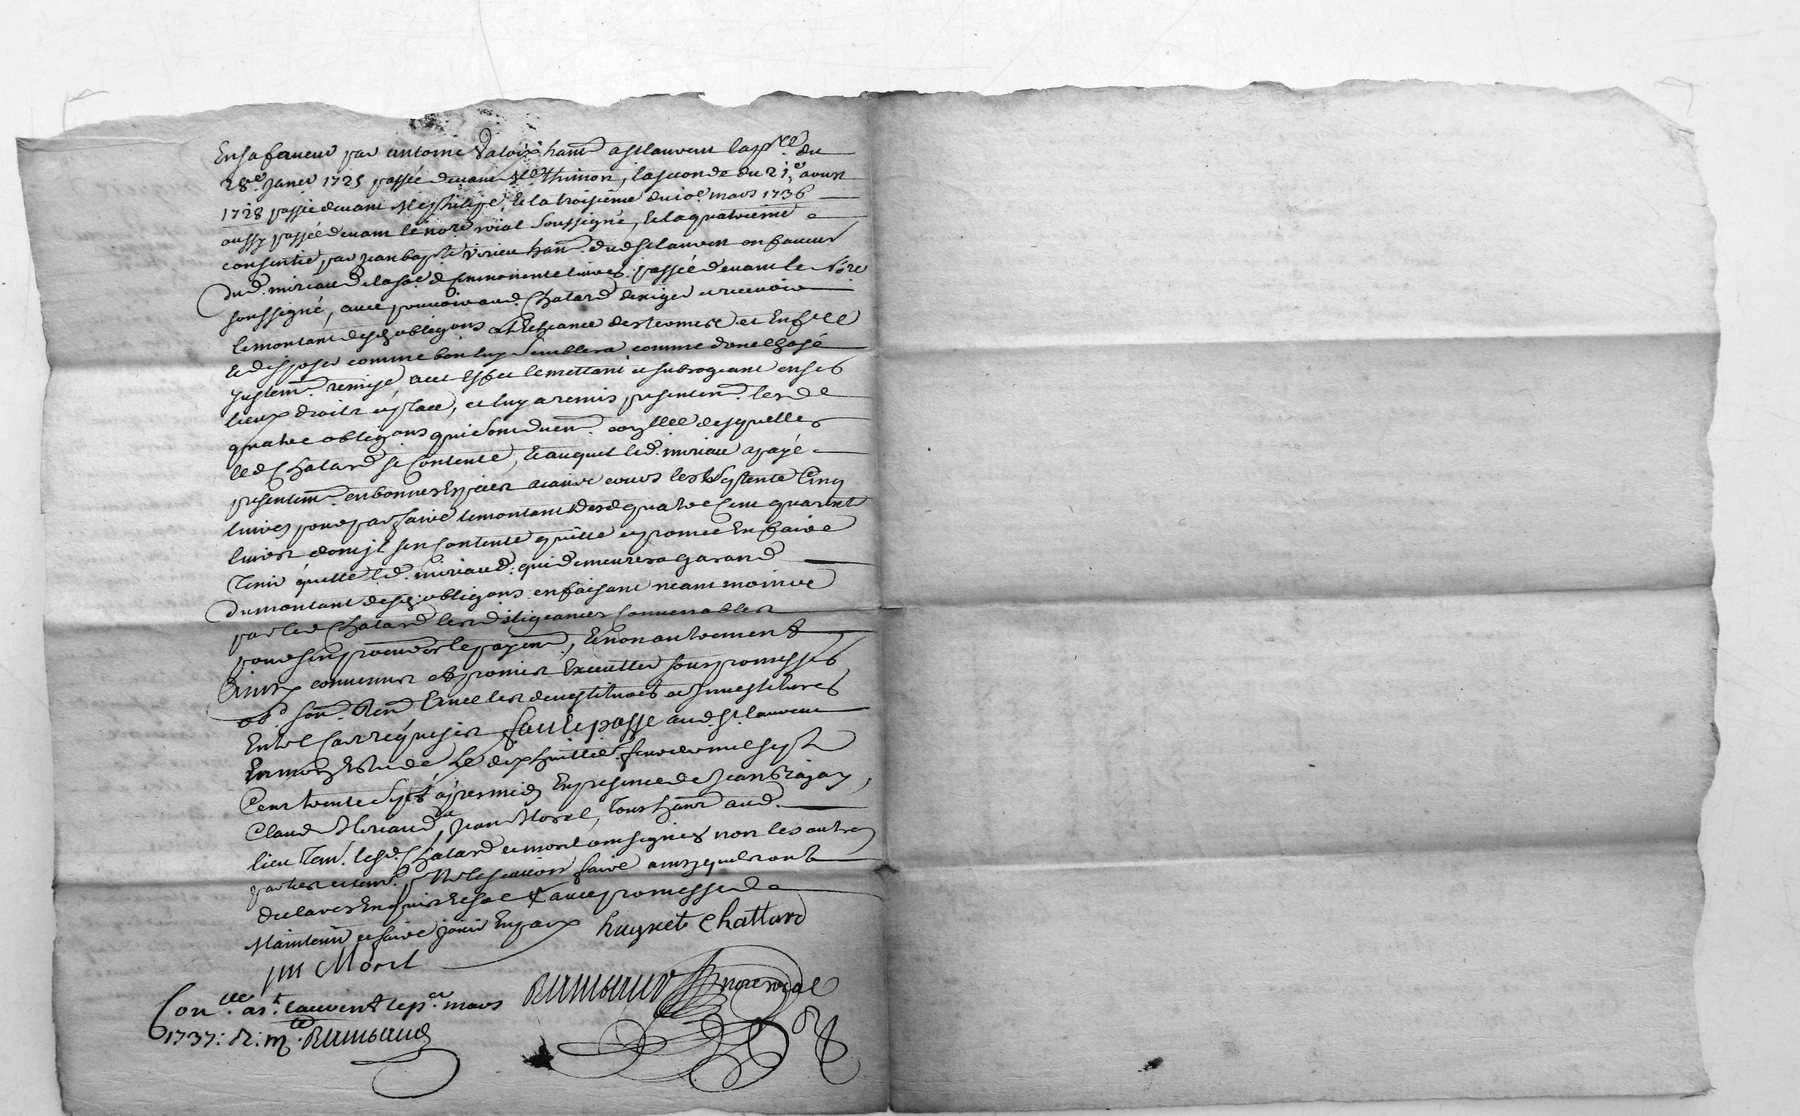 En sa faveur par antoine Valoix hant a st laurent la pre du
28e janer 1725 passée devant Me Thimon, la seconde du 21e avril
1728 passée devant Me philipe, et la troisieme du 10e mars 1736
aussy passée devant le nore roial soussigné, et la quatrieme
consentie par jean bapte Virieu hant dud st laurent en faveur
dud. miriaud la so͞e de livres passée devant le nore
soussigné, avec pouvoir aud Chatard dexiger et recevoir
le montant desd obligons a lEcheance des termes et En
Et disposer comme bon luy Semblera comme dune chose
justemt remise, a cet Effet le mettant et subrogeant en ses
lieux droits et place, et luy a remis presentemt lesd
quatre obligons qui sont duemt desquelles
led Chatard se Contente, Et auquel led. miriau a payé
presentemt en bonnes Espèces aiant cours les Septente Cinq
livres pour parfaire le montant desd quatre Cent quarente
livres dont il sen Contente quitte et promet En faire
Tenir quitte led. miriaud. qui demeurera garand
du montant desd obligons en faisant neant moins
par led Chatard les diligeances Convenables
pour sen procurer le payemt, Et non autrement
Ainsy convenues et promis Executter sous promesses
obd soumd Renond Avec les devestitures et Investitures
En tel Cas requises fait et passé aud. st. laurent
En mon Estude Le dixhuittie fevrier mil sept
Cent trente Sept apres midy En presence de jean
Claude jean Morel, Tous hants aud.
lieu Temt. lesd. Chatard et morel ont signés non les autres
parties et temt pr ne le scavoir faire ainsy quils ont
declarés Enquis Et so͞e & avec promesse de
Maintenir et faire jouir En paix huguet Chattard
Morel
Rimaud nore roial
Conlle a st. laurent le pr. mars
1737: R: Rimaud